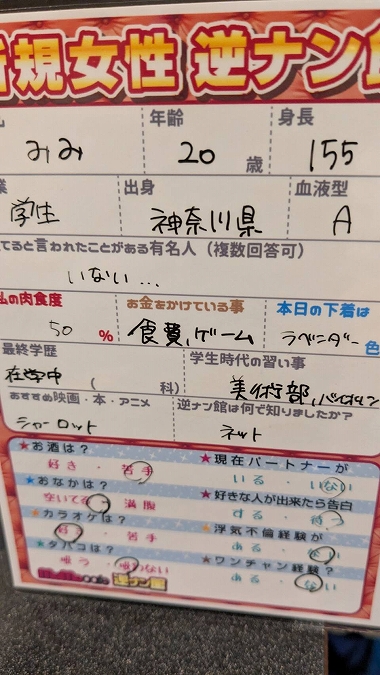 新規女性 逆ナン館
年齢 身長
みみ 20 歳 155
業 出身 血液型
学生 神奈川県 A
てると言われたことがある有名人（複数回答可）
いない...
私の肉食度 お金をかけている事 本日の下着は
50 % 食費、ゲーム ラベンダー 色
最終学歴 学生時代の習い事
在学中 ( 科) 美術部、バイオリン
おすすめ映画・本・アニメ 逆ナン館は何で知りましたか？
シャーロット ネット
★お酒は？ ★現在パートナーが
好き・苦手 いる・いない
★おなかは？ ★好きな人が出来たら告白
空いてる・満腹 する・待つ
★カラオケは？ ★浮気不倫経験が
好き・苦手 ある・ない
★タバコは？ ★ワンチャン経験？
吸う・吸わない ある・ない
cafe 逆ナン館